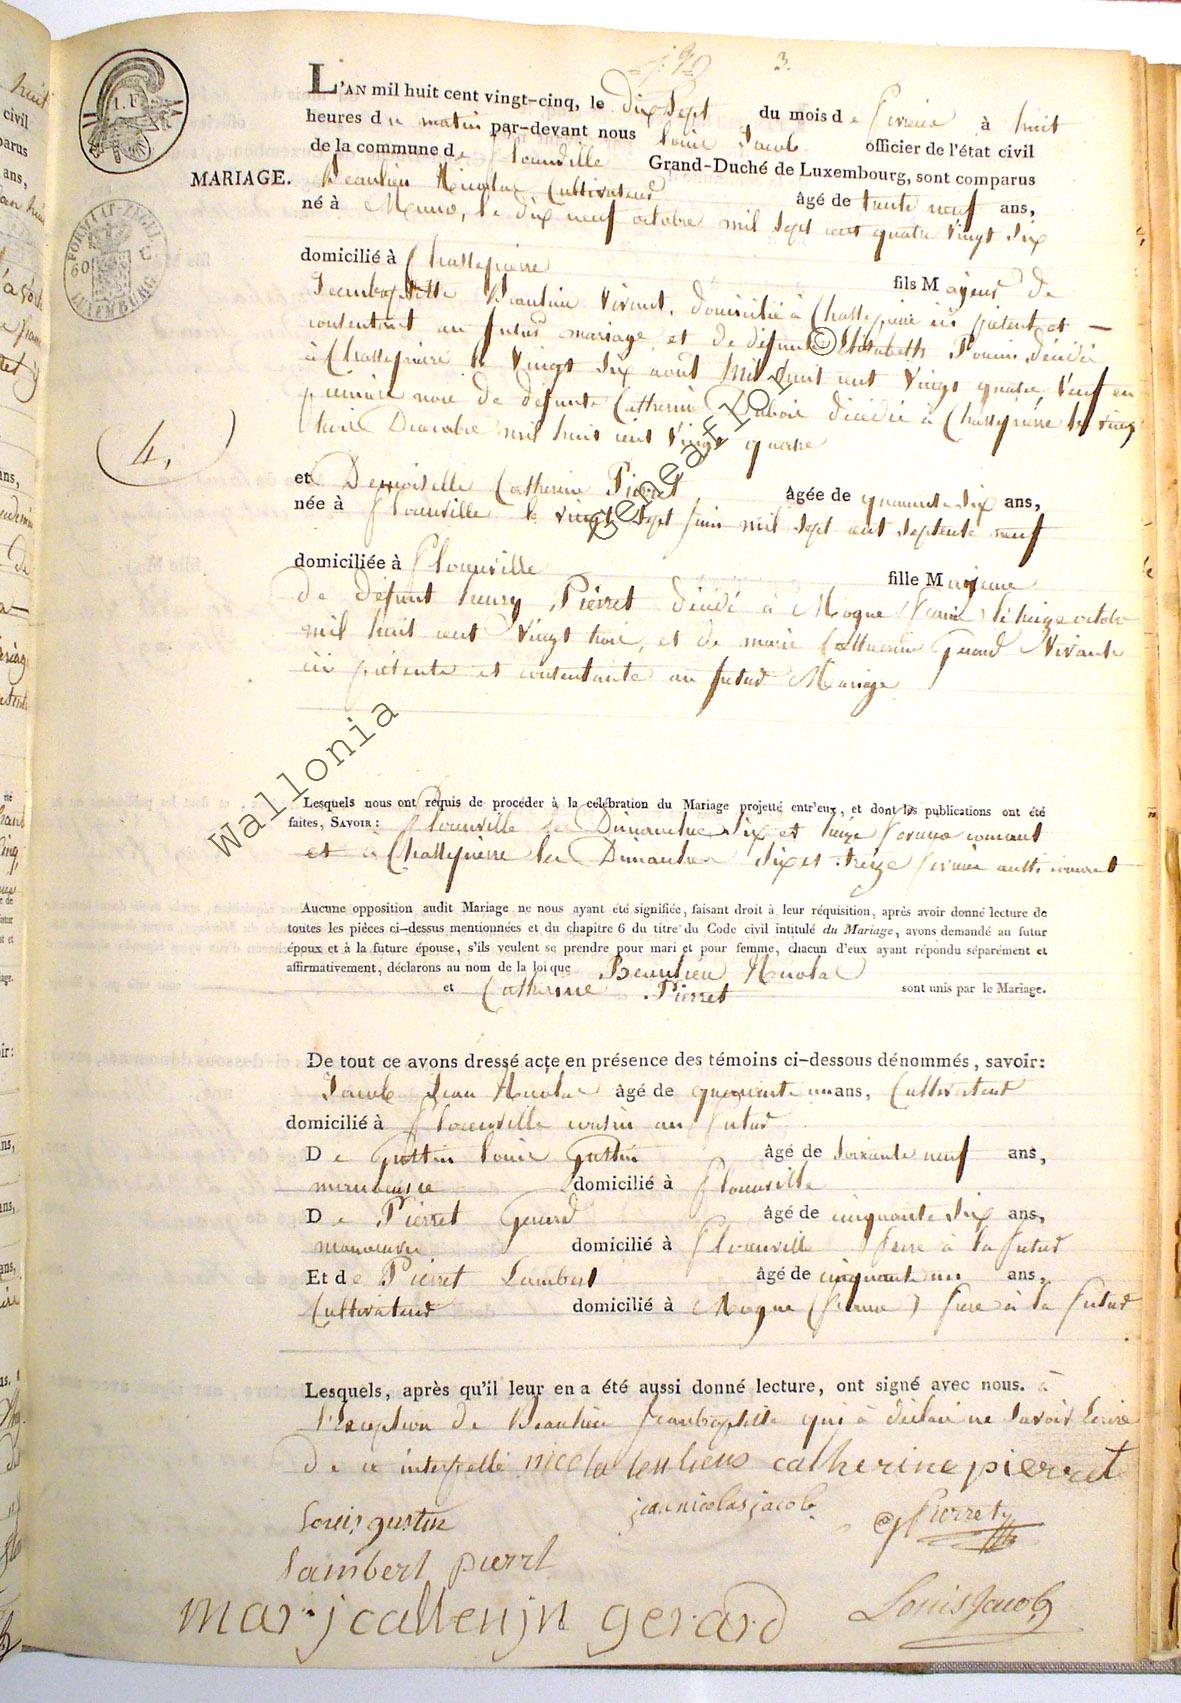 3.
L'AN mil huit cent vingt-cinq, le dix sept du mois de fevrier à huit
heures du matin par-devant nous Louis Jacob officier de l'état civil
de la commune de Florenville Grand-Duché de Luxembourg, sont comparus
MARIAGE. Beaulieu Nicolas Cultivateur âgé de trente neuf ans,
né à Muno, le dix neuf octobre mil sept cent quatre vingt six
domicilié à Chassepierre fils Majeur de
Jeanbaptiste Beaulieu vivant, domicilié à Chassepierre ici présent et
consentant au futur mariage et de défunte Elisabeth Poncin décédée
à Chassepierre le vingt six août mil huit cent vingt quatre, veuf en
première noce de défunte Catherine Dubois décédée à Chassepierre le vingt
trois Decembre mil huit cent vingt quatre
4.
et Demoiselle Catherine Pierret âgée de quarante six ans,
née à Florenville le vingt sept juin mil sept cent septante neuf
domiciliée à Florenville fille Majeure
de défunt henry Pierret décédé à Mogue (france) le treize octobre
mil huit cent vingt trois, et de marie Catherine Gerard vivante
ici présente et consentante au futur Mariage
Lesquels nous ont requis de procéder à la célébration du Mariage projetté entr'eux, et dont les publications ont été
faites, SAVOIR: Florenville les Dimanches six et treize fevrier courant
et à Chassepierre les Dimanches six et treize fevrier aussi courant
Aucune opposition audit Mariage ne nous ayant été signifiée, faisant droit à leur réquisition, après avoir donné lecture de
toutes les pièces ci-dessus mentionnées et du chapitre 6 du titre du Code civil intitulé du Mariage, avons demandé au futur
époux et à la future épouse, s'ils veulent se prendre pour mari et pour femme, chacun d'eux ayant répondu séparément et
affirmativement, déclarons au nom de la loi que Beaulieu Nicolas
et Catherine Pierret sont unis par le Mariage.
De tout ce avons dressé acte en présence des témoins ci-dessous dénommés, savoir:
Jacob Jean Nicolas âgé de quarante un ans, Cultivateur
domicilié à Florenville cousin au futur
De Gustin Louis Gustin âgé de soixante neuf ans,
manoeuvre domicilié à Florenville
De Pierret Gerard âgé de cinquante six ans,
manoeuvre domicilié à Florenville frere à la futur
Et de Pierret Lambert âgé de cinquante un ans,
Cultivateur domicilié à Mogue (france) frere à la futur
Lesquels, après qu'il leur en a été aussi donné lecture, ont signé avec nous. à
l'exception de Beaulieu Jeanbaptiste qui à déclaré ne savoir écrire
de ce interpellé nicolas beulieux catherine pierret
Louis gustin jean nicolas jacob g Pierret
Lambert pierret
marj catterijn gerard Louis Jacob
Wallonia © Geneaflor